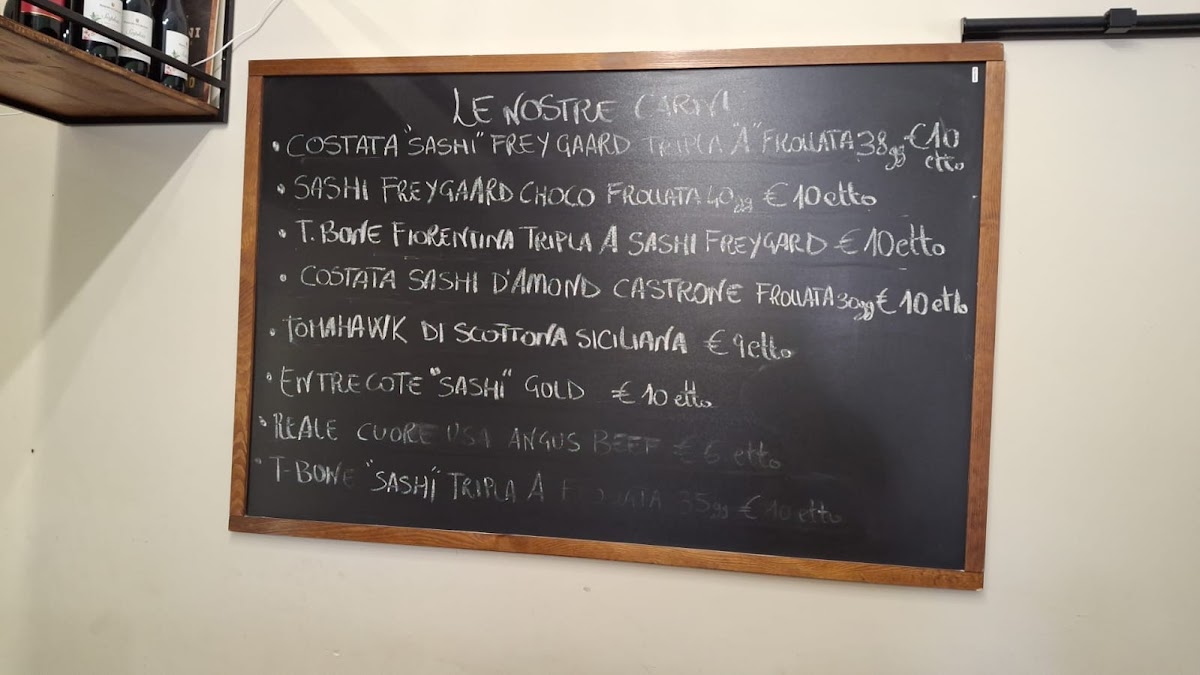 LE NOSTRE CARNI
• COSTATA "SASHI" FREYGAARD TRIPLA "A" FROLLATA 38gg €10 etto
• SASHI FREYGAARD CHOCO FROLLATA 40gg €10 etto
• T.BONE FIORENTINA TRIPLA A SASHI FREYGARD €10 etto
• COSTATA SASHI D'AMOND CASTRONE FROLLATA 30gg €10 etto
• TOMAHAWK DI SCOTTONA SICILIANA €9 etto
• ENTRECOTE "SASHI" GOLD €10 etto
• REALE CUORE USA ANGUS BEEF €6 etto
• T-BONE "SASHI" TRIPLA A FROLLATA 35gg €10 etto